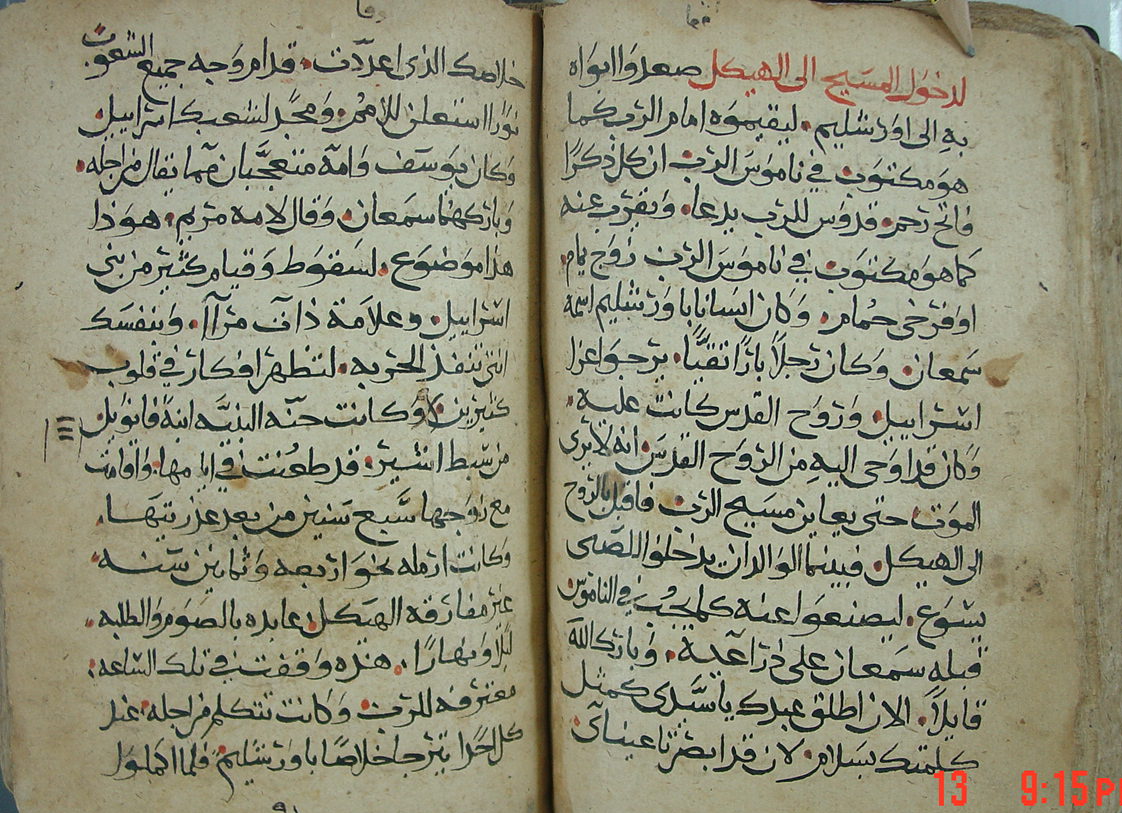 لدخول المسيح الى الهيكل صعدوا ابواه
به الى اورشليم. ليقيموه امام الرب كما
هو مكتوب في ناموس الرب ان كل ذكرا
فاتح رحم. قدوس للرب يدعا. ويقرب عنه
كما هو مكتوب في ناموس الرب زوج يمام
او فرخي حمام. وكان انسانا باورشليم اسمه
سمعان. وكان رجلاً بارًا تقيًا. يرجوا عزا
اسراييل. وروح القدس كانت عليه.
وكان قد اوحي اليه من الروح القدس. انه لا يرى
الموت حتى يعاين مسيح الرب فاقبل بالروح
الى الهيكل. فبينما الوالدان يدخلوا الصبي
يسوع. ليصنعوا عنه كما يجب في الناموس
قبله سمعان على ذراعيه. وبارك الله
قايلاً. الان اطلق عبدك يا سيدي كمثل
كلمتك بسلام. لان قد ابصرتا عيناي
خلاصك الذي اعددت. قدام وجه جميع الشعوب
نورًا استعلن للامم. ومجد لشعبك اسراييل
وكان يوسف وامه متعجبان مما يقال من اجله.
وباركهما سمعان. وقال لامه مريم. هوذا
هذا موضوع. لسقوط وقيام كثير من بني
اسراييل. وعلامة ذات مرآا. وبنفسك
انتي تنفذ الحربه. لتظهر افكار في قلوب
كثيرين. وكانت حنه النبيه ابنة فانوايل
من سبط اشير. قد طعنت في ايامها. واقامت
مع زوجها سبع سنين من بعد عذريتها.
وكانت ارمله نحو اربعه وثمانين سنه
غير مفارقه الهيكل. عابده بالصوم والطلبه.
ليلا ونهارًا. هذه وقفت في تلك الساعه.
معترفه للرب وكانت تتكلم من اجله. عند
كل احد يترجا خلاصًا باورشليم. فلما اكملوا
13 9:15 P